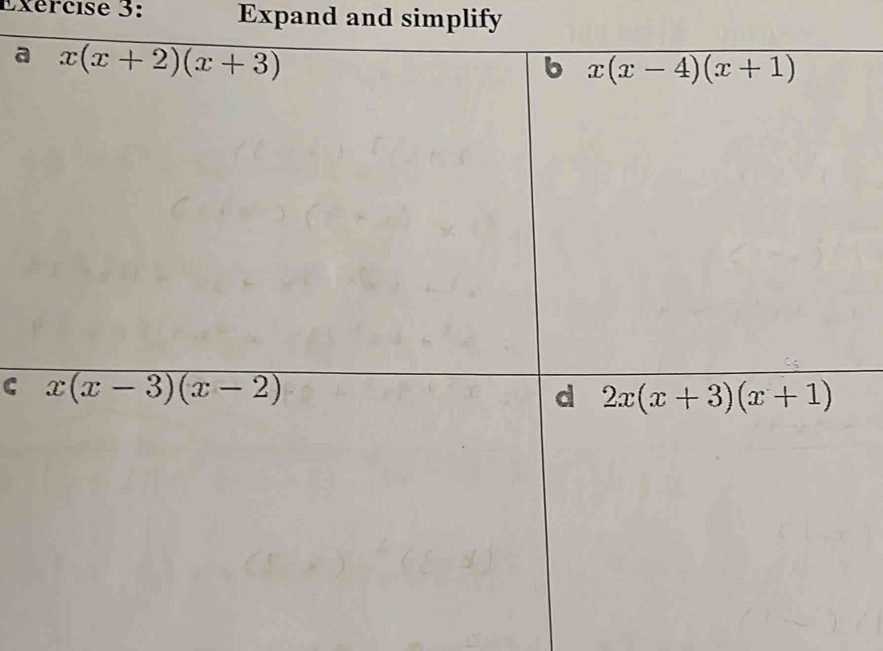 Exercise 3: Expand and simplify
a x(x + 2)(x + 3)
b x(x − 4)(x + 1)
c x(x − 3)(x − 2)
d 2x(x + 3)(x + 1)